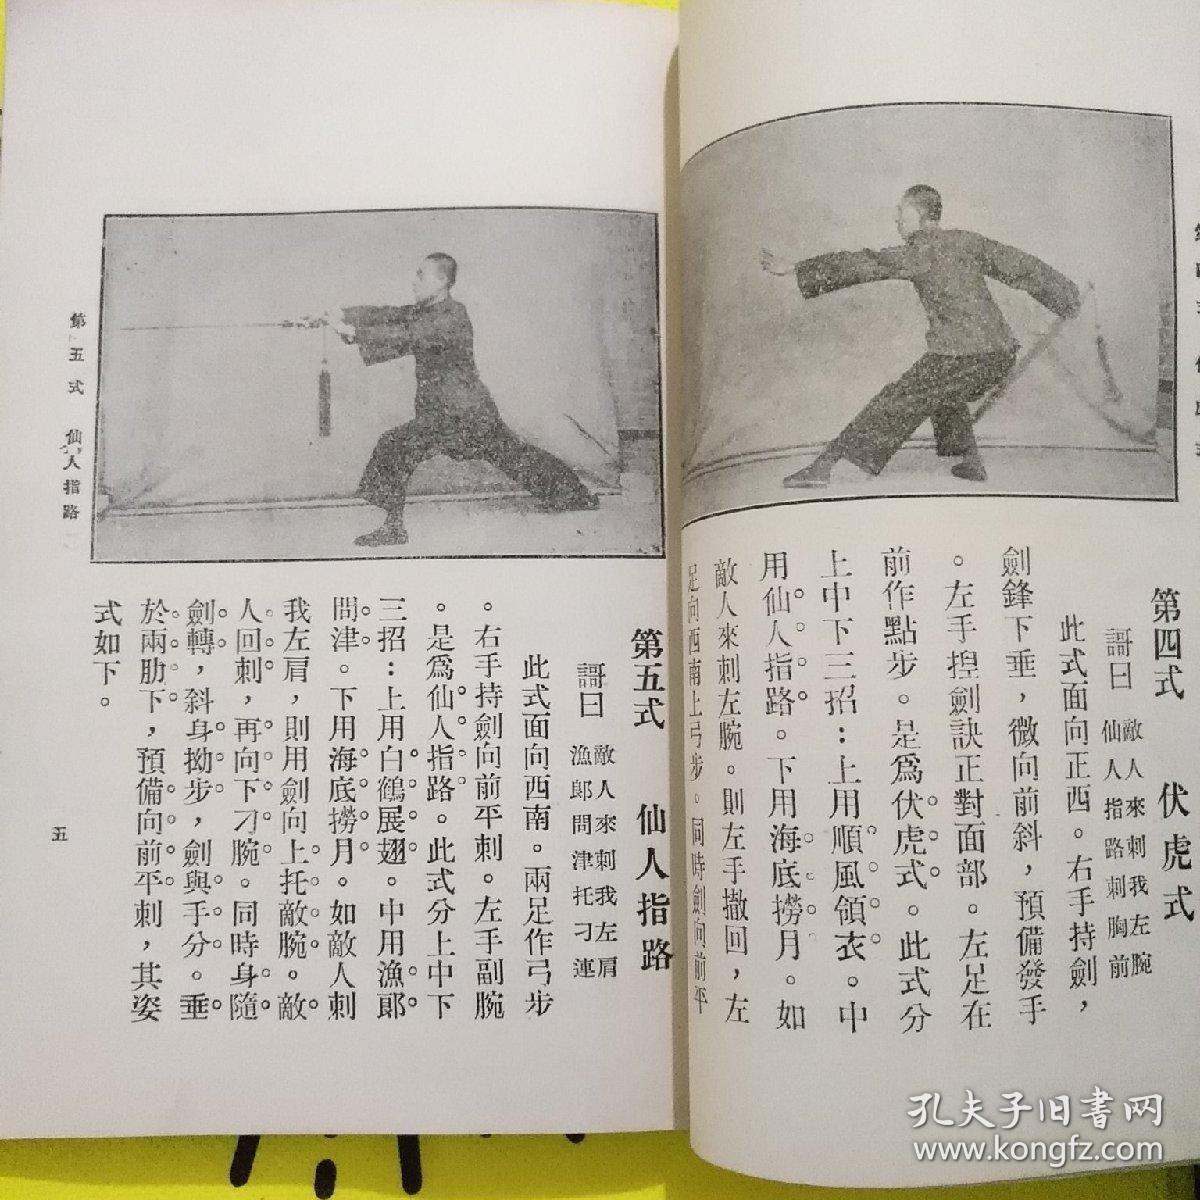 第四式　伏虎式
謌曰
敵人來刺我左腕
仙人指路刺胸前
此式面向正西。右手持劍，
劍鋒下垂，微向前斜，預備發手
。左手揑劍訣正對面部。左足在
前作點步。是爲伏虎式。此式分
上中下三招：上用順風領衣。中
用仙人指路。下用海底撈月。如
敵人來刺左腕。則左手撤回，左
足向西南上弓步。同時劍向前平
第五式　仙人指路
謌曰
敵人來刺我左肩
漁郞問津托刁連
此式面向西南。兩足作弓步
。右手持劍向前平刺。左手副腕
。是爲仙人指路。此式分上中下
三招：上用白鶴展翅。中用漁郞
問津。下用海底撈月。如敵人刺
我左肩，則用劍向上托敵腕。敵
人回刺，再向下刁腕。同時身隨
劍轉，斜身拗步，劍與手分。垂
於兩肋下，預備向前平刺，其姿
式如下。
第五式　仙人指路
五
孔夫子旧书网
www.kongfz.com